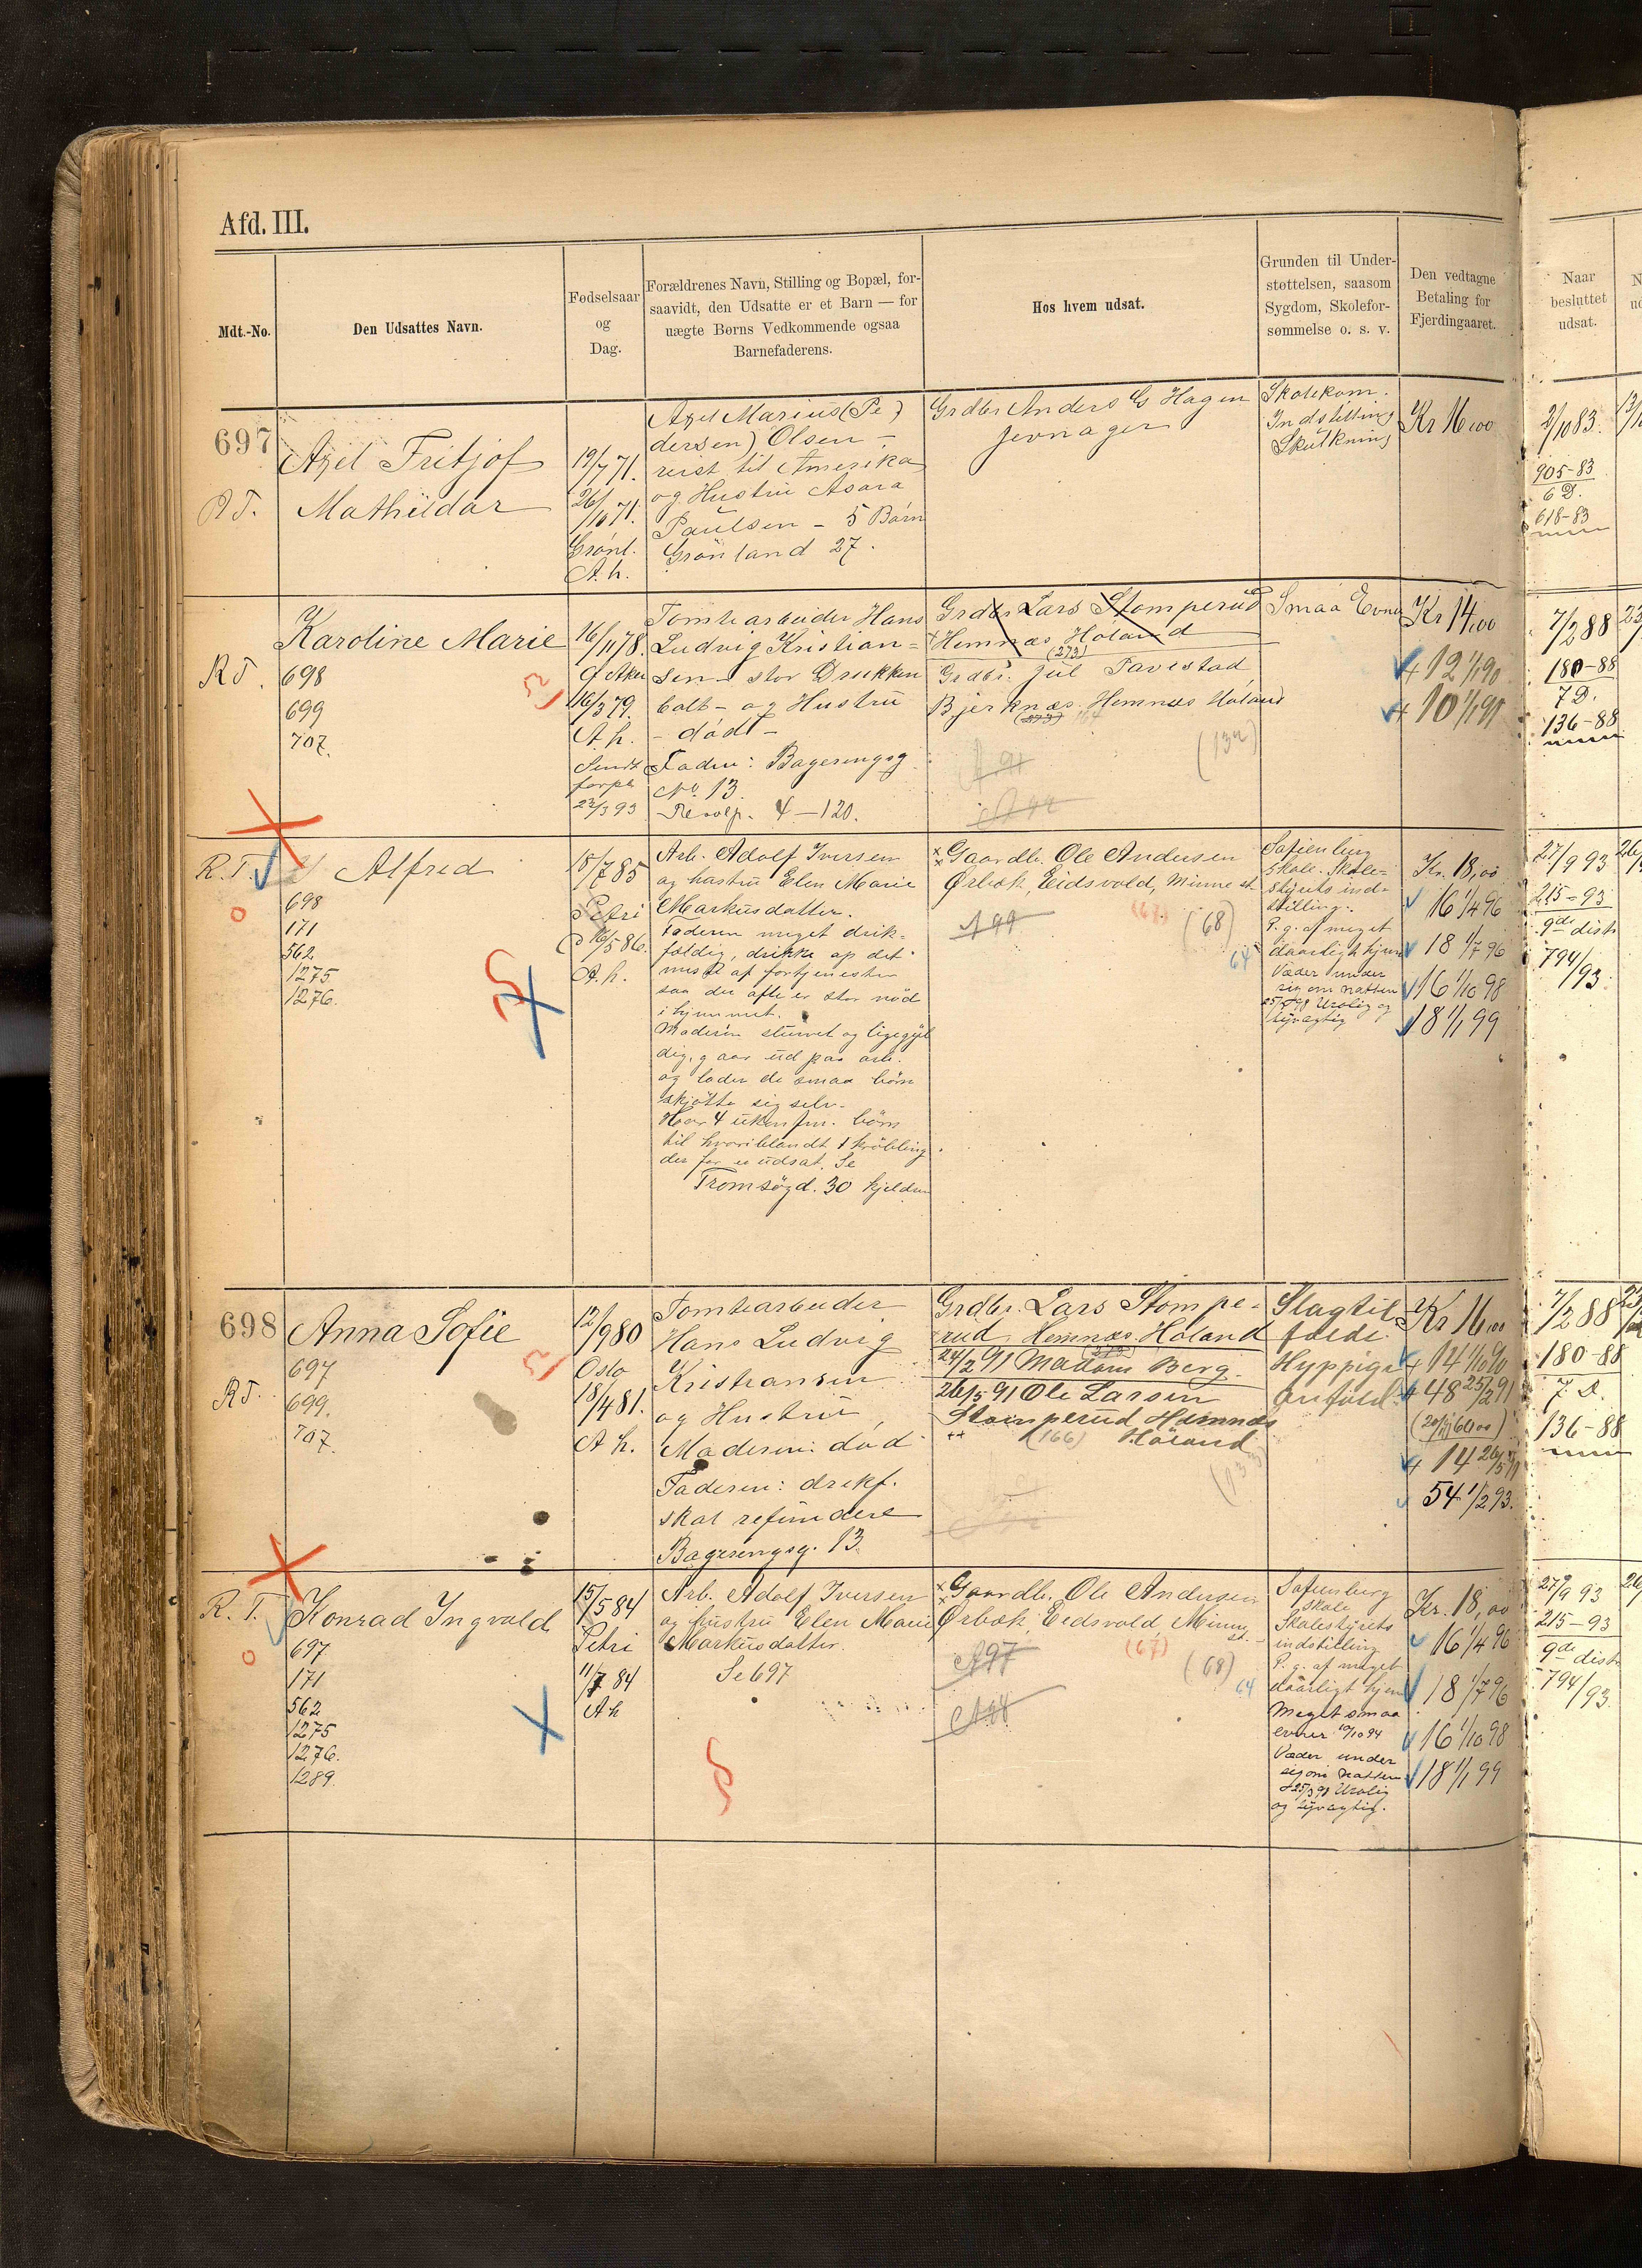 Afd. III.
Mdt.-No.
Den Udsattes Navn.
Fødselsaar
og
Dag.
Forældrenes Navn, Stilling og Bopæl, for-
saavidt, den Udsatte er et Barn — for
uægte Børns Vedkommende ogsaa
Barnefaderens.
Hos hvem udsat.
Grunden til Under-
støttelsen, saasom
Sygdom, Skolefor-
sømmelse o. s. v.
Den vedtagne
Betaling for
Fjerdingaaret.
Naar
besluttet
udsat.
697
RT.
Axel Fritjof
Mathildar
19/7 71.
26/10 71.
Grønl.
A. h.
Axel Marius (Pe
dersen) Olsen -
reist til Amerika
og Hustru
Paulsen - 5 Børn
Grønland 27.
Grdbr Anders G Hagen
Jevnager
Skolekom.
Indstilling
Skulkning
Kr 16,00
2/10 83.
905-83
6 D.
618-83
RT.
Karoline Marie
698
699
707.
16/11 78.
G Aker
16/3 79.
A. h.
Sendt
forpl
22/3 93
Tomtearbeider Hans
Ludvig Kristian=
sen - stor Drukken
bolt - og Hustru
- død -
Fader: Bagerengsg
No. 13.
4-120.
Grdbr Lars Stomperud
Hemnæs Høland
(273)
Grdbr. Jul Tavestad
Bjerknæs Hemnæs Høland
(132)
Smaa Evner
Kr 14,00
+ 12 1/1 90
+ 10 1/1 91
7/2 88
180-88
7 D.
136-88
R.T.
Alfred
698
171
562
1275
1276.
18/7 85
Petri
16/5 86.
A. h.
Arb. Adolf Iversen
og hustru Elen Marie
Markusdatter.
Faderen meget drik-
fældig, drikke op det
meste af fortjenesten
saa der ofte er stor nød
i hjemmet.
Moderen sturvet og ligegyl
dig, gaar ud paa arb.
og lader de smaa børn
skjøtte sig selv.
Har 4 ukonfirm. børn
til hvoriblandt 1 krøbling
der før er udsat. Se
Tromsøgd. 30 kjelderen
Gaardbr. Ole Andersen
Ørbæk, Eidsvold, Minne st
A 99
(67)
(68)
64
Sofienberg
Skole. Skole-
styrets ind-
stilling.
P. g. af meget
daarligt hjem
Væder under
sig om natten
Urolig og
tyvagtig
Kr. 18,00
16 1/4 96
18 1/7 96
16 1/10 98
18 1/1 99
27/9 93
215-93
9de distr
794/93
698
RT.
Anna Sofie
697
699.
707.
12/9 80
Oslo
18/4 81.
A h.
Tomtearbeider
Hans Ludvig
Kristiansen
og Hustru
Moderen: død
Faderen: drikf.
skal refundere
Bagerengsg. 13
Grdbr. Lars Stompe-
rud, Hemnæs Høland
24/2 91 Madam Berg.
26/5 91 Ole Larsen
Stomperud Hemnæs
(166) Høland
(133)
Slagtil
fælde.
Hyppige
Anfald.
Kr 16,00
+ 14 1/10 90
+ 48 25/2 91
+ 14 26/5 91
54 1/2 93.
7/2 88
180-88
7. D.
136-88
R. T.
Konrad Ingvald
697
171
562
1275
1276.
1289.
15/5 84
Petri
11/7 84
A h
Arb. Adolf Iversen
og hustru Elen Marie
Markusdatter.
Se 697
Gaardbr. Ole Andersen
Ørbæk, Eidsvold, Minne
st.
(67)
(68)
64
A 97
A 98
Sofienberg
Skole
Skolestyrets
indstilling
P. g. af meget
daarligt hjem
Meget smaa
evner 10/10 94
Væder under
sig om natten
25/3 98 Urolig
og tyvagtig.
Kr. 18,00
16 1/4 96
18 1/7 96
16 1/10 98
18 1/1 99
27/9 93
215-93
9de distr
794/93.